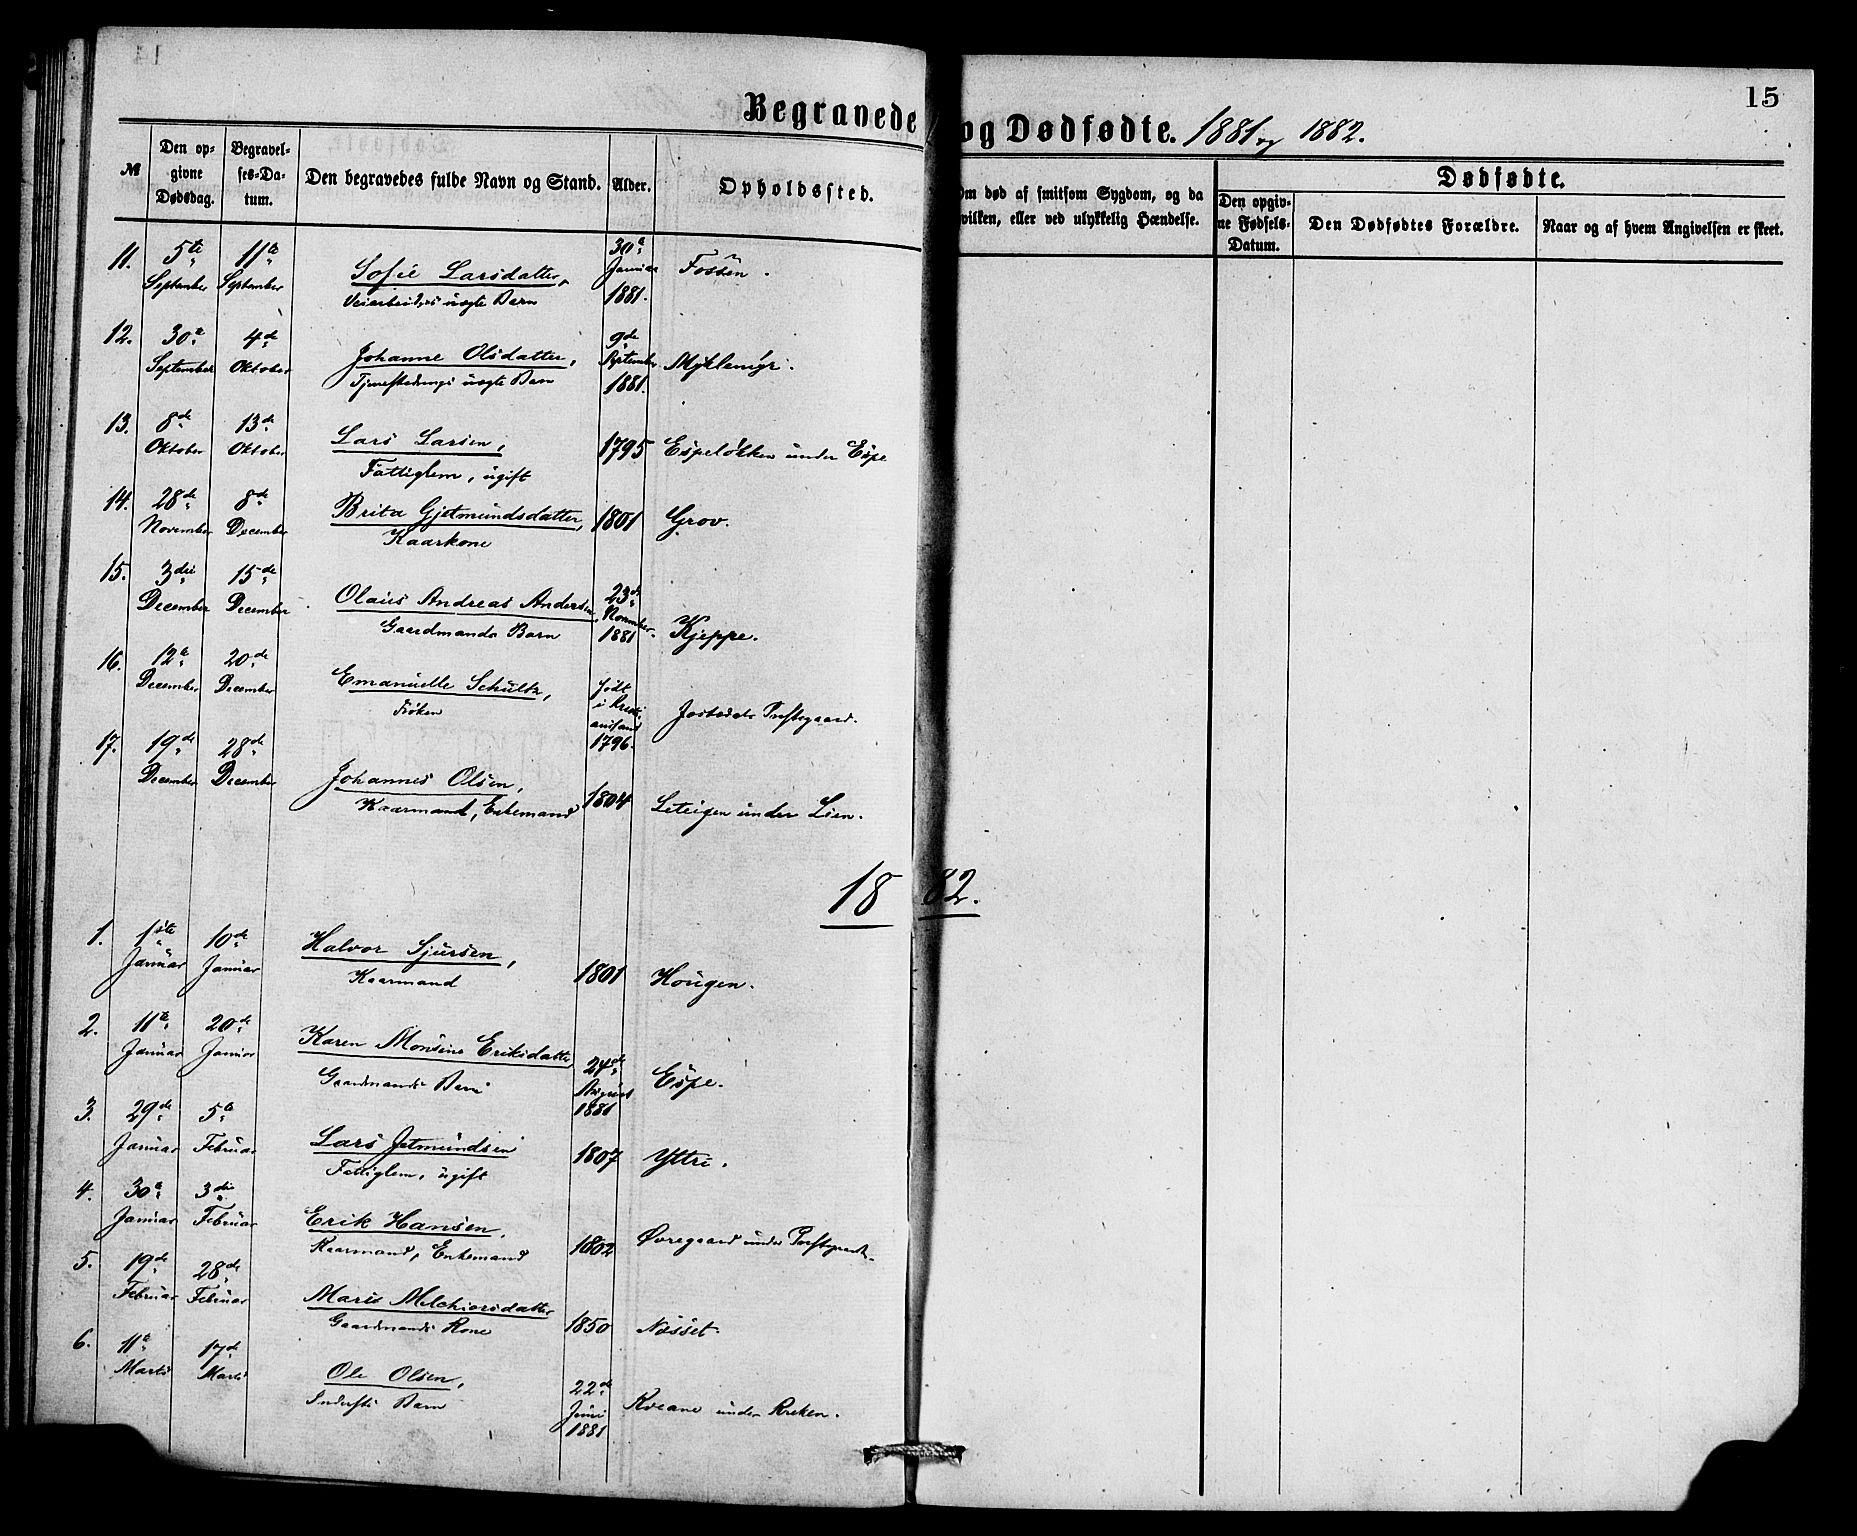 15
Begravede og Dødfødte. 1881 og 1882.
№
Den opgivne Dødsdag.
Begravelses-Datum.
Den begravedes fulde Navn og Stand.
Alder.
Opholdssted.
Om død af smitsom Sygdom, og da
vilken, eller ved ulykkelig Hændelse.
Dødfødte.
Den opgivne Fødsels-Datum.
Den Dødfødtes Forældre.
Naar og af hvem Angivelsen er skeet.
11. 5te September 11te September Sofie Larsdatter, 30te Januar 1881. Fossen.
Veiarbeiders uægte Barn
12. 30te September 4de Oktober Johanne Olsdatter, 9de September 1881. Myklemyr.
Tjenestedrengs uægte Barn
13. 8de Oktober 13de Oktober Lars Larsen, 1795 Espeløkken under Espe
Fattiglem, ugift
14. 28de November 8de December Brita Gjetmundsdatter, 1801 Grov.
Kaarkone
15. 3die December 15de December Olaus Andreas Andersen, 23de November 1881. Kjeppe.
Gaardmands Barn
16. 12te December 20de December Emanuelle Schultz, født i Kristiansand 1796. Jostedals Præstegaard.
Frøken
17. 19de December 28de December Johannes Olsen, 1804 Leteigen under Lien.
Kaarmand, Enkemand
1882.
1. 1ste Januar 10de Januar Halvor Sjursen, 1801 Hougen.
Kaarmand
2. 11te Januar 20de Januar Karen Monsine Eriksdatter 24de August 1881 Espe.
Gaardmands Barn
3. 29de Januar 5te Februar Lars Jetmundsen 1807 Yttri.
Fattiglem, ugift
4. 30te Januar 3die Februar Erik Hansen, 1802 Øvregaard under Præstegaarden.
Kaarmand, Enkemand
5. 19de Februar 28de Februar Maris Melchiorsdatter 1850 Næsset.
Gaardmands Kone
6. 11te Marts 17de Marts Ole Olsen, 22de Juni 1881 Kveane under Kreken.
Indersts Barn